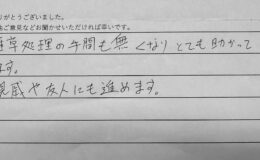 りがとうございました。
ご意見などお聞かせいただければ幸いです。
処理の手間も無くなりとても助かって
ます。
親戚や友人にも進めます。